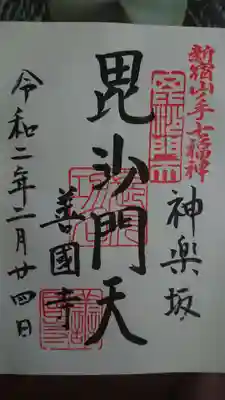 新宿山ノ手七福神
神楽坂
毘沙門天
毘沙門天
善國寺
令和二年二月廿四日